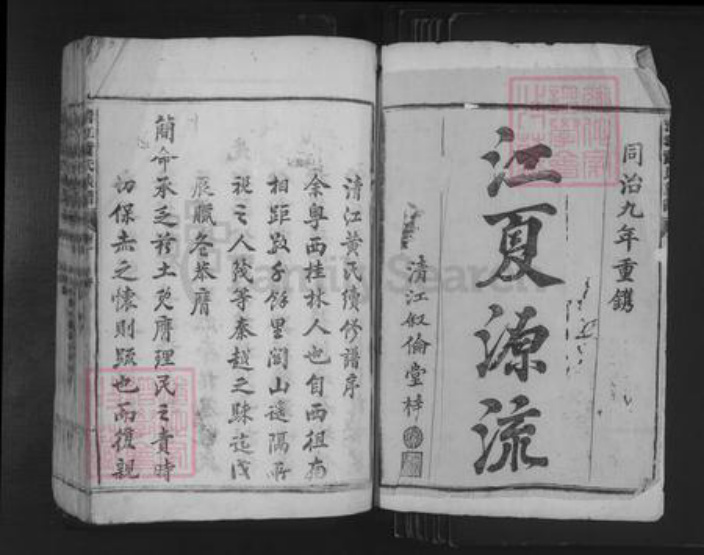 同治九年重鐫
江夏源流
清江叙倫堂梓
清江黄氏續修譜序
余粤西桂林人也自西徂南
相距数千餘里関山遠隔所
視之人幾等秦越之踈迄戊
辰臘冬恭膺
簡命承乏茲土更膺理民之責時
切保赤之懷則踈也而復親
FamilySearch